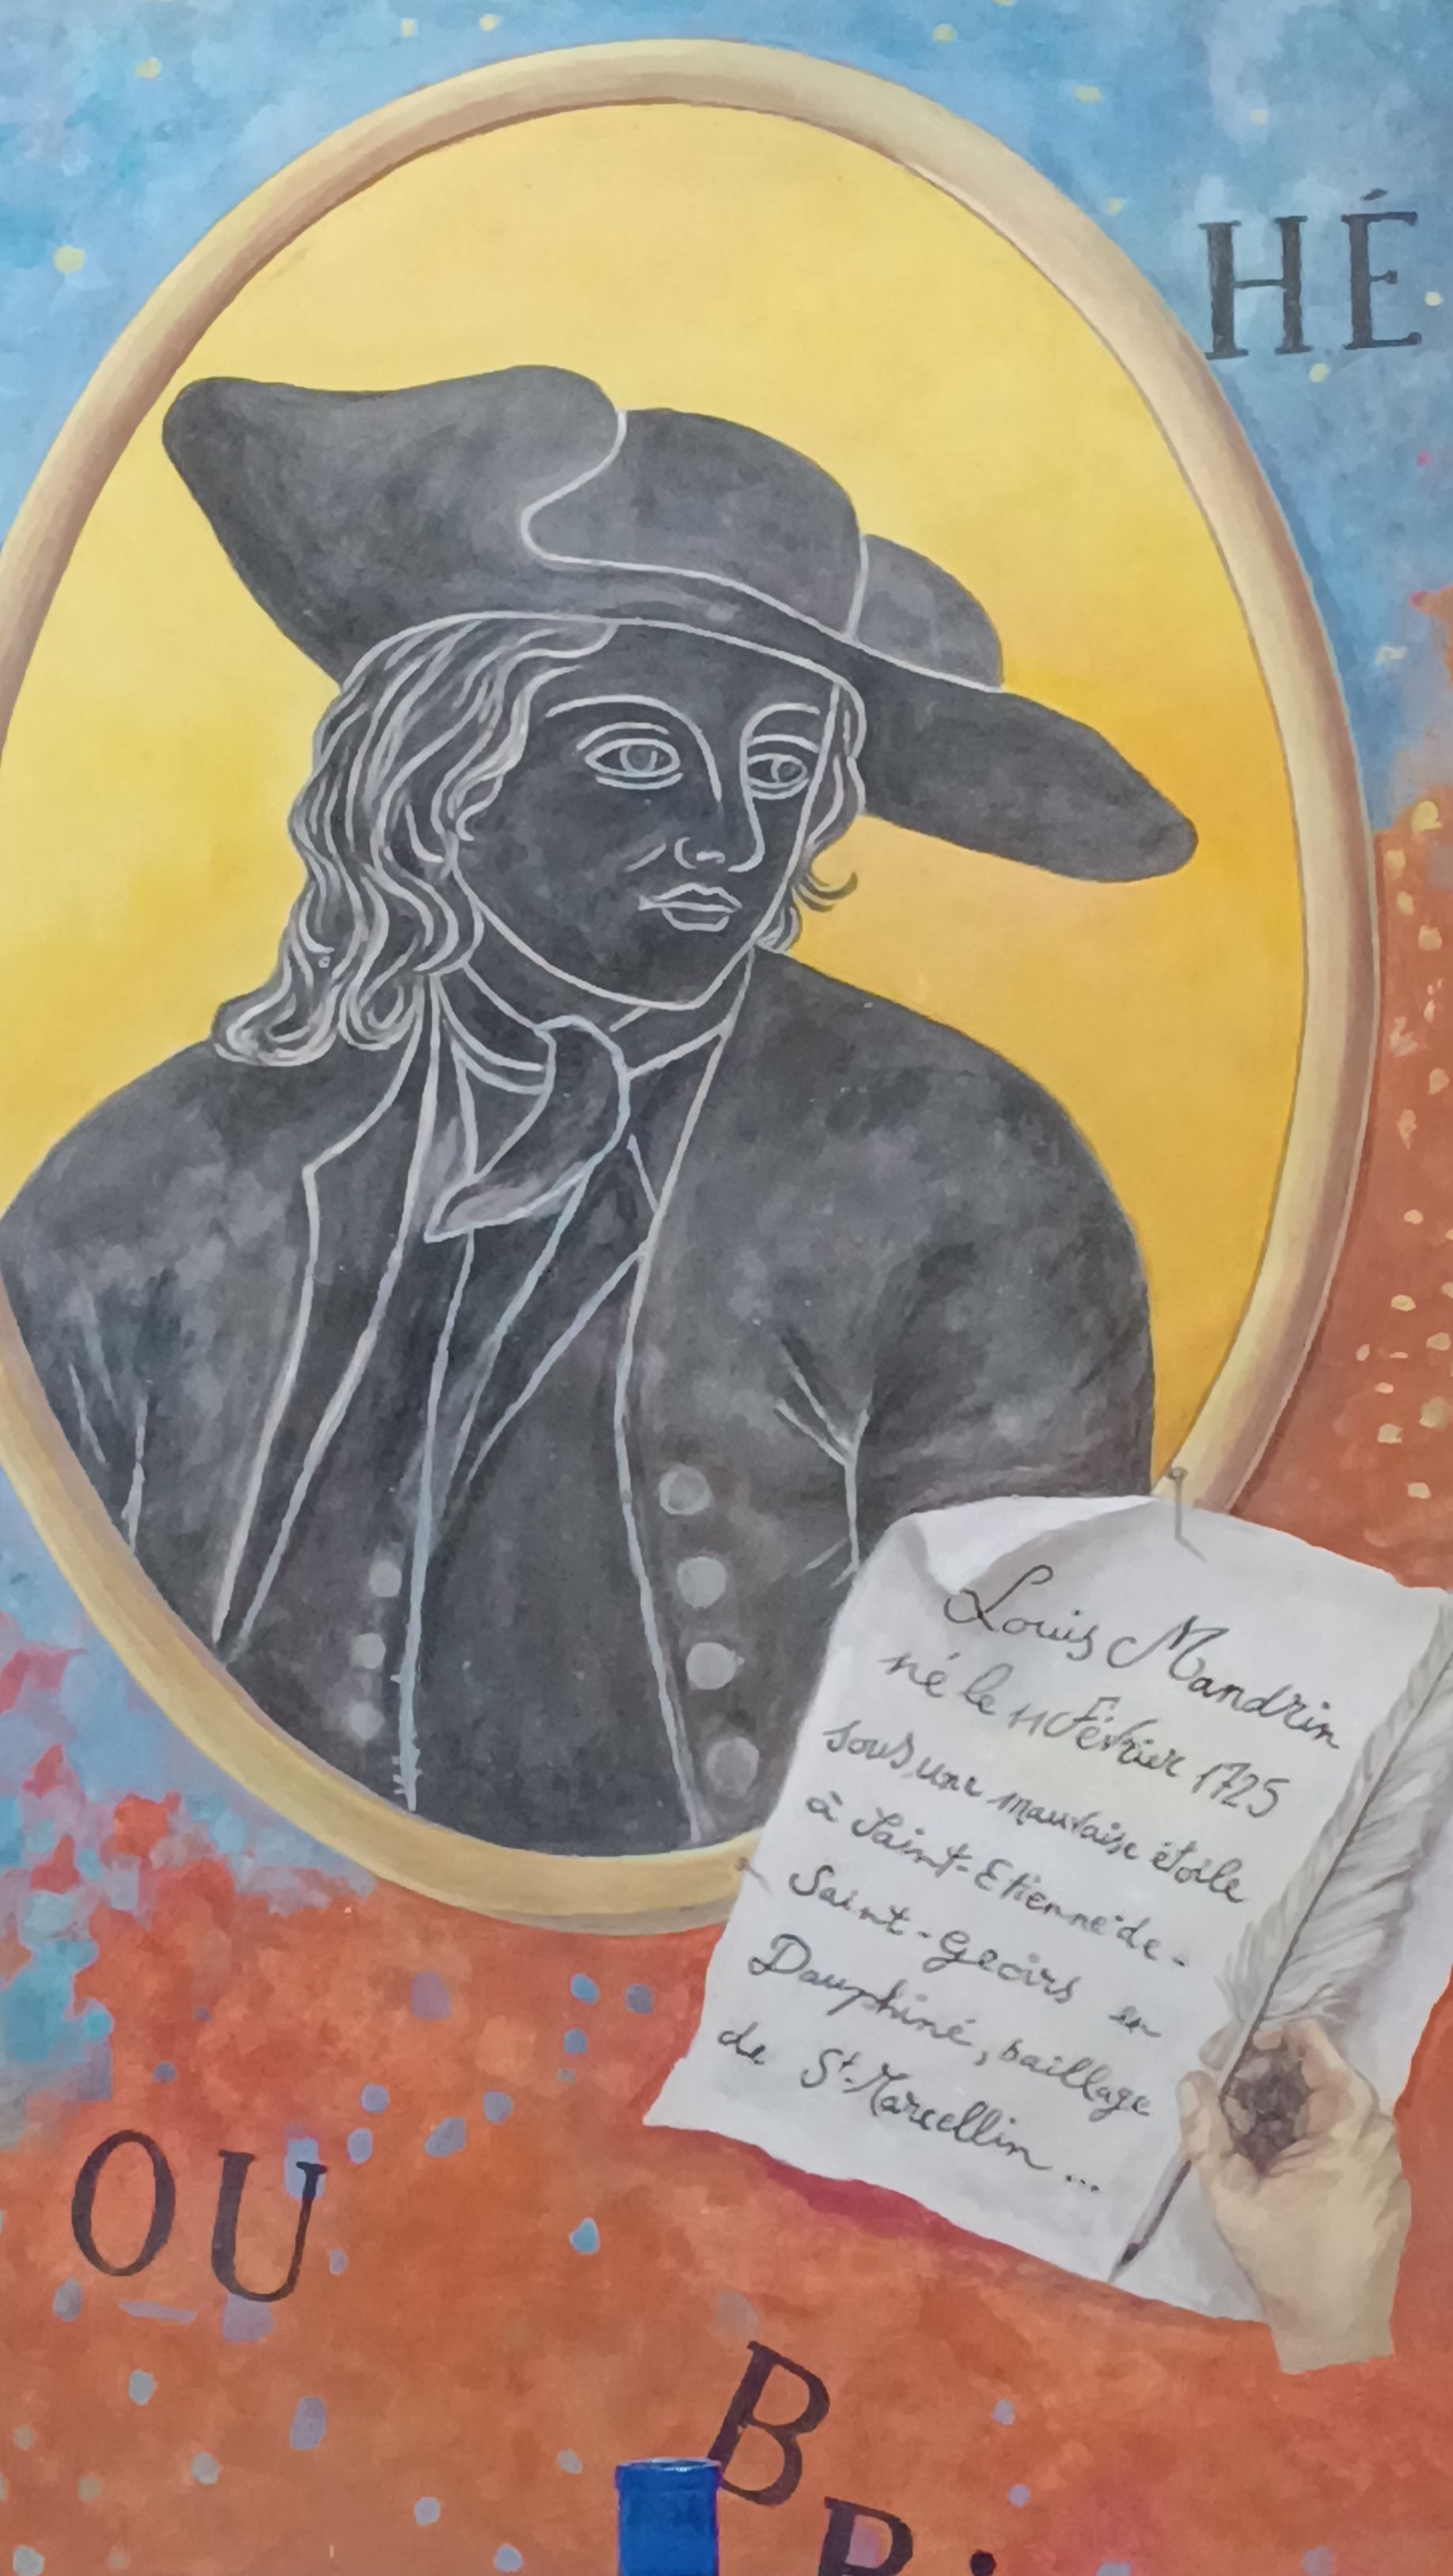 HÉ
Louis Mandrin
né le 11 Février 1725
sous une mauvaise étoile
à Saint-Etienne-de-
Saint-Geoirs en
Dauphiné, baillage
de St-Marcellin ...
OU
B